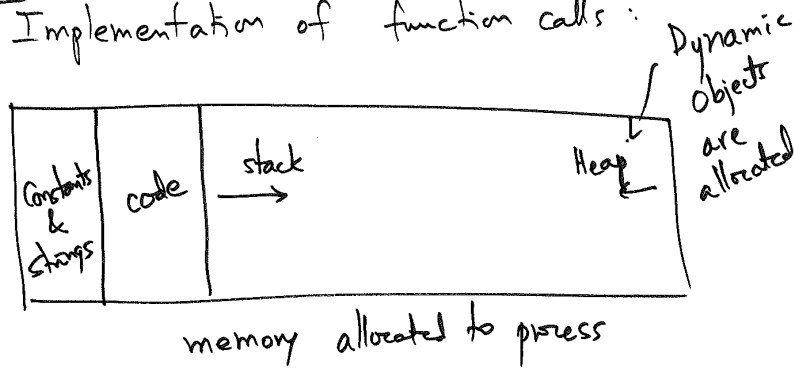 Implementation of function calls :
Dynamic
Objects
are
allocated
Constants
&
strings
code
stack
Heap
memory allocated to process